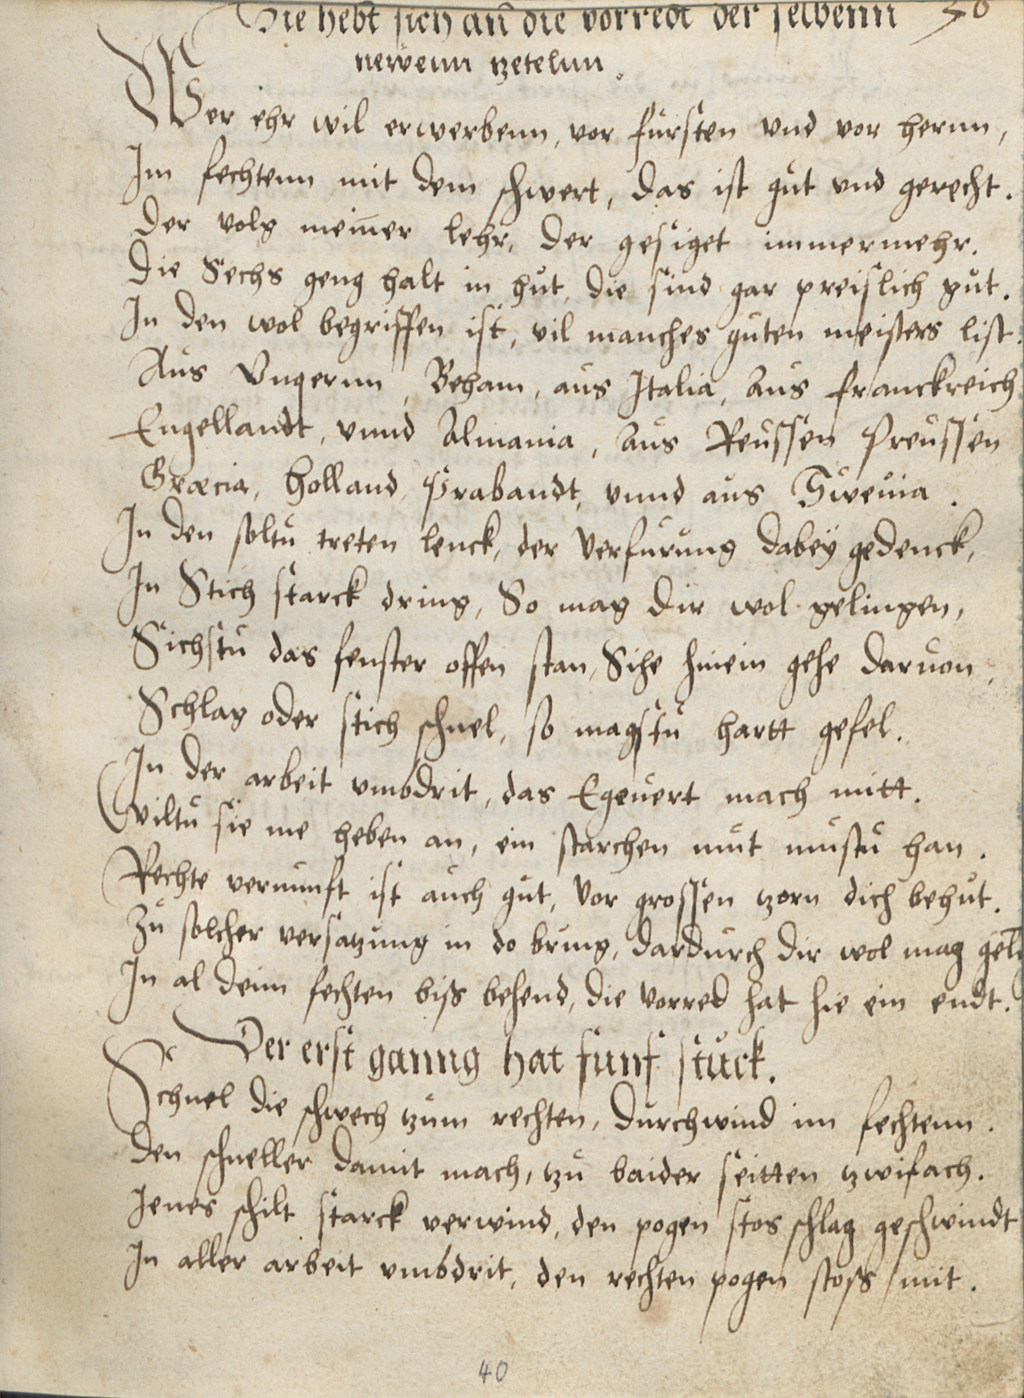 Hie hebt sich an die vorredt der selbenn
newenn tzetelnn.
Wer ehr wil erwerbenn, vor fürsten vnd vor hernn,
Im fechtenn mit dem schwert, das ist güt vnd gerecht.
Der volg meiner lehr, der gesiget immermehr.
Die Sechs geng halt in hüt, die sind gar preislich güt.
In den wol begriffen ist, vil manches güten meisters list.
Aüs Vngernn, Beham, aus Italia, Aüs franckreich
Engellandt, vnnd Almania, Aüs Reüssen Preüssen
Græcia, Holland, Prabandt, vnnd aüs Swevia.
In den soltü treten lenck, der Verfürüng dabeÿ gedenck,
In Stich starck dring, So mag dir wol gelingen,
Sichstü das fenster offen stan, Sihe hinein gehe daruon.
Schlag oder stich schnel, so magstü hartt gefel.
In der arbeit vmbdrit, das Egeüert mach mitt.
Wiltü sie me heben an, ein starchen müt müstü han.
Rechte vernünft ist aüch güt, Vor grossen tzorn dich behüt.
Zü solcher versatzüng in do bring, dardürch dir wol mag gel
In al deim fechten biss behend, die Vorred hat hie ein endt.
Der erst ganng hat fünf stück.
Schnel die schwech tzüm rechten, dürchwind im fechtenn.
Den schneller damit mach, tzü baider seitten tzwifach.
Jenes schilt starck verwind, den pogen stos schlag geschwindt
In aller arbeit vmbdrit, den rechten pogen stoss mit.
40